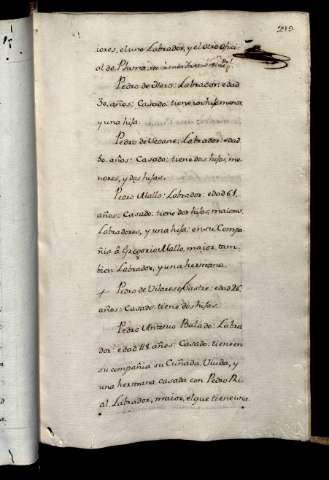 219.
iores, el uno Labrador, y el otro ofici
al de Pluma
Pedro de Otero: Labrador: edad
30. años: Casado: tiene un hijo menor
y una hija.
Pedro de Seoane: Labrador: edad
60. años: Casado: tiene dos hijos, me
nores, y dos hijas.
Pedro Mallo: Labrador: edad 61.
años: Casado: tiene dos hijos, maiores
Labradores, y una hija: en su Compa
ñia â Gregorio Mallo, maior, tam
bien Labrador, y una hermana.
Pedro de Vilares: Sastre: edad 26
años: Casado: tiene dos hijas.
Pedro Antonio Balado: Labra
dor: edad 48. años: Casado: tiene en
su compañia su Cuñada Viuda, y
una hermana casada con Pedro Ri
al Labrador, maior, el que tiene una